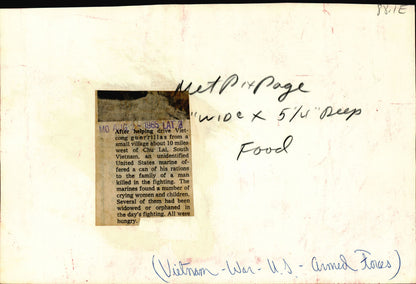 Met Pix Page
" wide x 5 1/4" Deep
Food
1966
After helping drive Viet-
cong guerrillas from a
small village about 10 miles
west of Chu Lai, South
Vietnam, an unidentified
United States marine of-
fered a can of his rations
to the family of a man
killed in the fighting. The
marines found a number of
crying women and children.
Several of them had been
widowed or orphaned in
the day's fighting. All were
hungry.
(Vietnam - War - U.S. - Armed Forces)